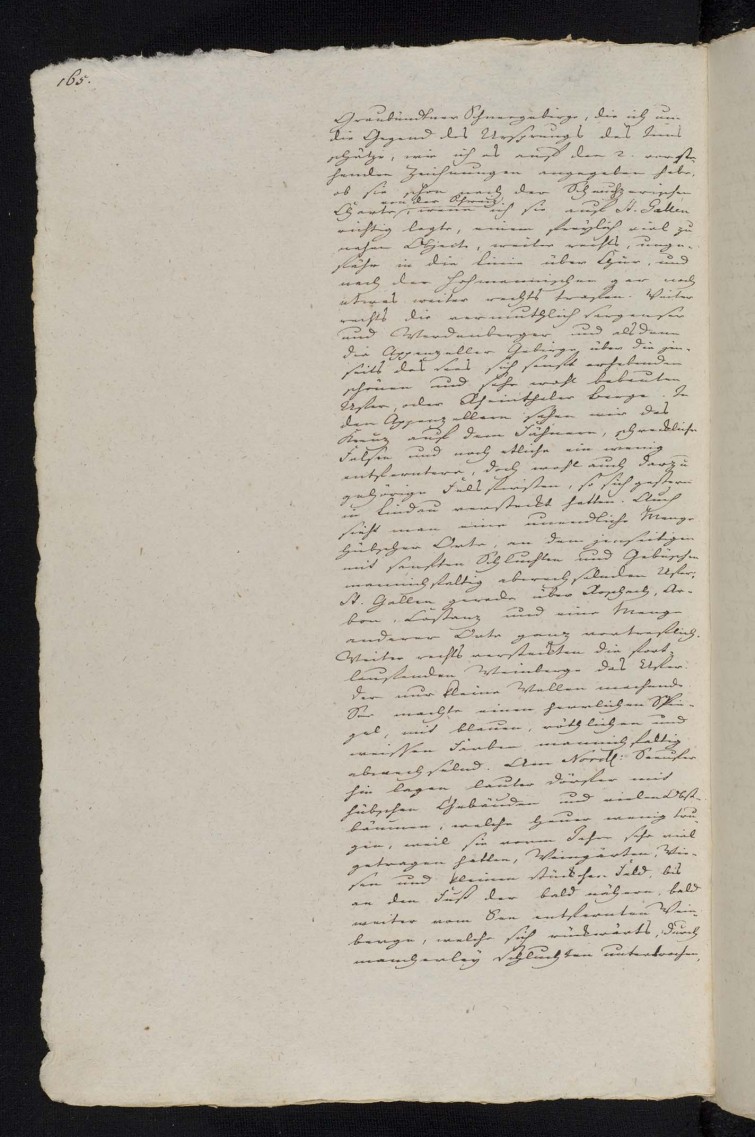 165.
Graubündtner Schneegebirge, die ich um
die Gegend des Ursprungs des Inns
schätze, wie ich es auf den 2. vorste-
henden Zeichnungen angegeben habe,
ob sie schon nach der Scheuchzerischen
Charte, wenn ich sie auf St. Gallen
richtig legte, einem freylich viel zu
nahen Objecte, weiter rechts, unge-
fähr in die Linie über Chur, und
nach der Homannischen gar noch
etwas weiter rechts trafen. Weiter
rechts die vermuthlich Sarganser
und Werdenberger und alsdann
die Appenzeller Gebirge über die jen-
seits des Sees sich sanft erhebenden
schönen und sehr wohl bebauten
Ufer, oder Rheinthaler Berge. In
den Appenzellern sahen wir das
Kreuz auf dem Fähnern, schreckliche
Felsen und noch etliche ein wenig
entferntere, doch wohl auch darzu
gehörige Fels, so sich gestern
in Lindau versteckt hatten. Auch
sieht man eine unendliche Menge
hübscher Orte, an dem jenseitigen
mit sanften Schluchten und Gebüschen
mannichfaltig abwechselnden Ufer,
St. Gallen gerade über Roschach, Ar-
bon, Costanz und eine Menge
anderer Orte ganz vortreflich.
Weiter rechts versteckten die fort-
laufenden Weinberge das Ufer.
Der nur kleine Wellen machende
See machte einen herrlichen Spie-
gel, mit blauen, röthlichen und
weissen Farben mannichfaltig
abwechselnd. Am Nordl: Seeufer
hin lagen lauter Dörfer mit
hübschen Gebäuden und vielen Obst-
bäumen, welche heuer wenig tru-
gen, weil sie vorm Jahre sehr viel
getragen hatten, Weingärten, Wie-
sen und kleinen Stückchen Feld, bis
an den Fuß der bald nähern, bald
weiter vom See entfernten Wein-
berge, welche sich rückwärts, durch
mancherley Schluchten unterbrochen,